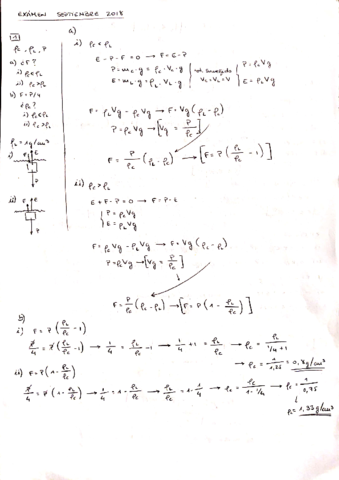 EXÁMEN SEPTIEMBRE 2018
1.1
ρc, ρL, P
a) ¿F?
i) ρc<ρL
ii) ρc>ρL
b) F=P/4
¿ρc?
i) ρc<ρL
ii) ρc>ρL
ρL = 1g/cm³
i)
F
E
P
ii)
F
E
P
a)
i) ρc<ρL
E - P - F = 0 → F = E - P
P = mc·g = ρc·Vc·g
E = mL·g = ρL·VL·g
Vc=VL=V
P = ρcVg
E = ρLVg
F = ρLVg - ρcVg → F = Vg(ρL - ρc)
P = ρcVg → [Vg = P/ρc]
F = P/ρc (ρL - ρc) → [F = P(ρL/ρc - 1)]
ii) ρc>ρL
E + F - P = 0 → F = P - E
P = ρcVg
E = ρLVg
F = ρcVg - ρLVg → F = Vg(ρc - ρL)
P = ρcVg → [Vg = P/ρc]
F = P/ρc (ρc - ρL) → [F = P(1 - ρL/ρc)]
b)
i) F = P(ρL/ρc - 1)
P/4 = P(ρL/ρc - 1) → 1/4 = ρL/ρc - 1 → 1/4 + 1 = ρL/ρc → ρc = ρL/(1/4 + 1)
→ ρc = 1/1,25 = 0,8g/cm³
ii) F = P(1 - ρL/ρc)
P/4 = P(1 - ρL/ρc) → 1/4 = 1 - ρL/ρc → ρL/ρc = 1 - 1/4 → ρc = ρL/(1 - 1/4) → ρc = 1/0,75
ρc = 1,33g/cm³